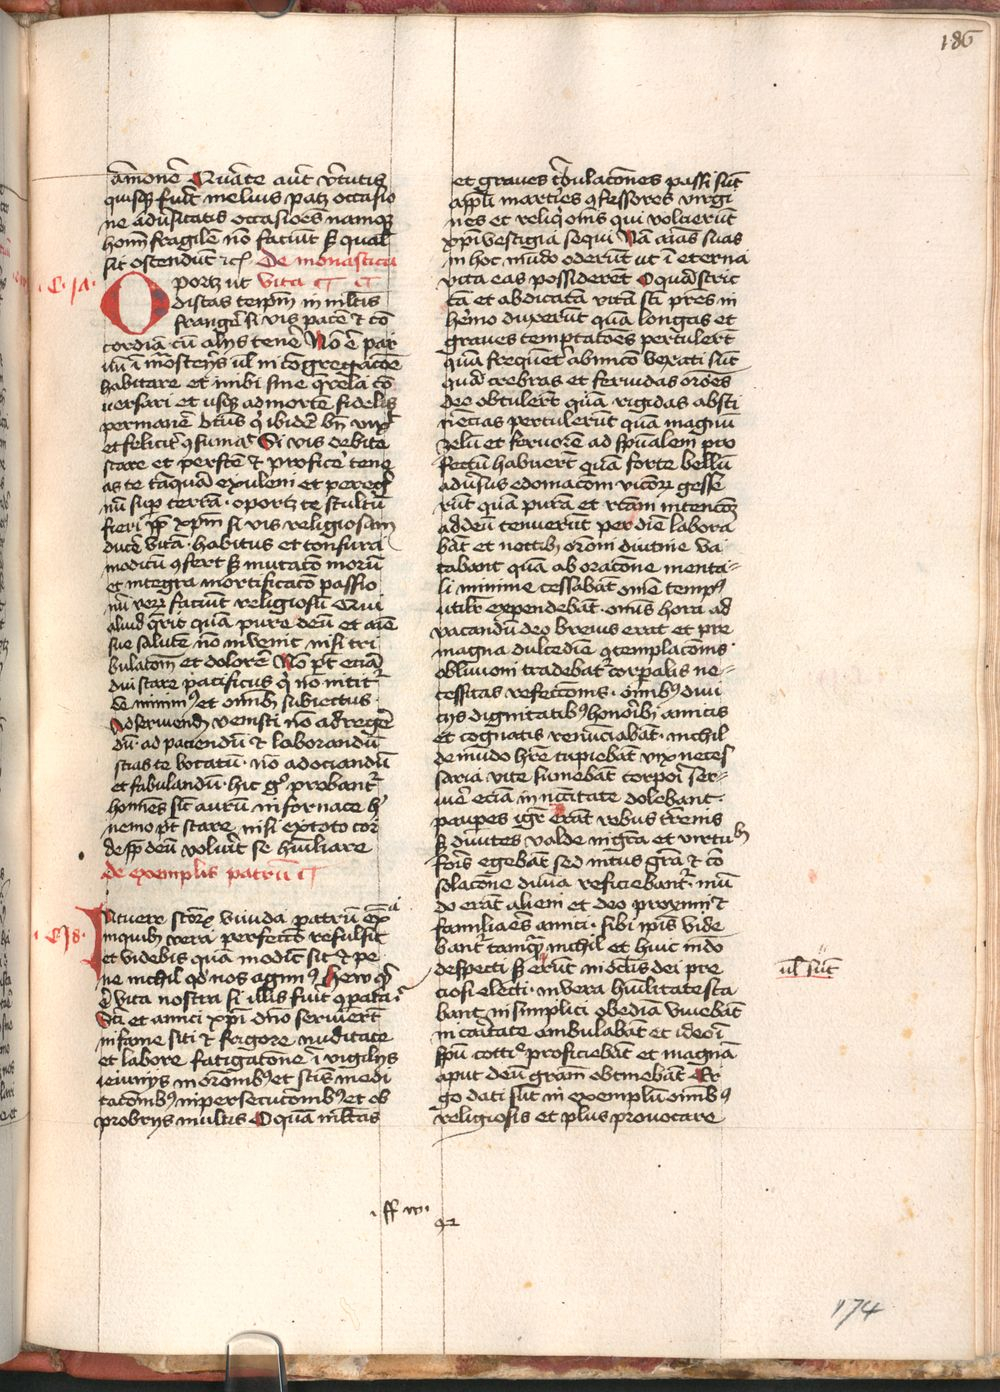 186
amonē Quāte aut̄ v̄tutis
quisqꝫ fuīt melius patꝫ occasio
ne adūsitatis occasiōes namqꝫ
hoīm fragilē nō faciūt sꝫ qual'
sit ostendūt ꝛcꝭ De monastica
vita
.C.ja.
Oportꝫ ut
discas teip̄m in m̄ltis
frangē si vis pacē ⁊ cō
cordiā cū alijs tenē Nō ē par
uū ī mōsterijs ul' in cōgregacōe
habitare et inibi sine q̄rela cō
uersari et usqꝫ ad mortē fidelis
permanē b̄tus qͥ ibidē bn̄ vixͭ
et felicit̓ ꝯsumāꝰ Si vis debite
stare et perficē ⁊ proficē tene
as te tāquā exulem et peregͥ
nū sup̄ terrā · oportꝫ te stultū
fieri ꝓp̄ xp̄m si vis religiosam
ducē vitā · habitus et tonsura
modicū ꝯfert sꝫ mutacō morū
et integra mortificacō passio
nū verꝫ faciūt religiosū Qui
aliud q̄rit quā pure deū et aīe
sue salutē nō inveniet nisi tri
bulacōm et dolorē Nō pt̄ eciā
diu stare pacificus qͥ nō nitit̄
ēē minimꝰ et omībꝫ subiectus
Ad seruiendū venisti nō ad regē
dū · ad paciendū ⁊ laborandū
scias te vocatū · nō ad ociandū
et fabulandū · hic gͦ probant̄
homīes sic̄ aurū in fornace hͥ
nemo pt̄ stare nisi ex toto cor
de ꝓp̄ deū voluīt se hūiliare
de exemplis patrū
.C.j8.
Intuere sctōrꝫ viuida patrū ex̄a
in quibꝫ vera perfectō refulsit
et videbis quā modicū sit ⁊ pe
ne nichil qd̓ nos agimꝰ Hew qͥd
ē vita nostra si illis fuīt ꝯparata
Sctī et amici xp̄i dn̄o seruiert̄
in fame siti ⁊ frigore nuditate
et labore fatigatione ī vigilijs
ieiunijs in orōnibꝫ et sctīs medi
tacōnibꝫ in persecucōnibꝫ et ob
probrijs multis O quā m̄ltas
et graues t̄bulacōnes passi sūt
app̄li martires ꝯfessores virgi
nes et reliqͥ oms̄ qui voluerūt
xp̄i vestigia sequi Nā aīas suas
in hoc mūdo oderūt ut ī eterna
vita eas possiderēt O quā stric
tā et abdicatā vitā sctī prēs in
hēmo duxerūt quā longas et
graues temptacōes pertulerūt
quā frequēt̄ ab inīco vexati sūt
quā crebras et feruidas orōes
deo obtulerūt quā rigidas absti
nēcias pertulerūt quā magnū
zelū et feruorē ad sp̄ualem pro
fectū habuerūt quā forte bellū
adūsus edomacōm vicorꝫ gesse
rūt quā purā et rectam intencōꝫ
ad deū tenuerūt per diē labora
bāt et noctibꝫ orōni diutine va
cabant quā ab oracōne menta-
li minime cessabāt om̄e tempꝰ
utilit̄ expendebāt om̄is hora ad
vacandū deo breuis erat et pre
magna dulcedīe ꝯtemplacōnis
obliuioni tradebat̄ corp̄alis ne-
cessitas refectionis · om̄ibꝫ diui
cijs dignitatibꝫ honōibꝫ amicis
et cognatis renūciabāt · nichil
de mūdo hr̄e cupiebāt vix neces
saria vite sumebāt corpori ser-
uīē eciā in nc̄citate dolebant ·
pauꝑes igr̄ erāt rebus terrenis
sꝫ diuites valde in gr̄a et virtubꝫ
foris egebāt sed intus grā ⁊ cō
solacōne diuīa reficiebant̄ · mū
do erāt alieni et deo proximi ⁊
familiares amici · sibi ip̄is vide
bant̄ tamquā nichil et huic mdō
despecti sꝫ erūt in oc̄lis dei pre
ciosi electi · in vera hūilitate sta
bant in simplici obediā viuebāt
in caritate ambulabāt et ideo ī
sp̄u cottiᵉ proficiebāt et magnā
aput deū grām obtinebāt Er
go dati sūt in exemplū om̄ibꝫ
religiosis et plus prouocare
ul' sūt
174